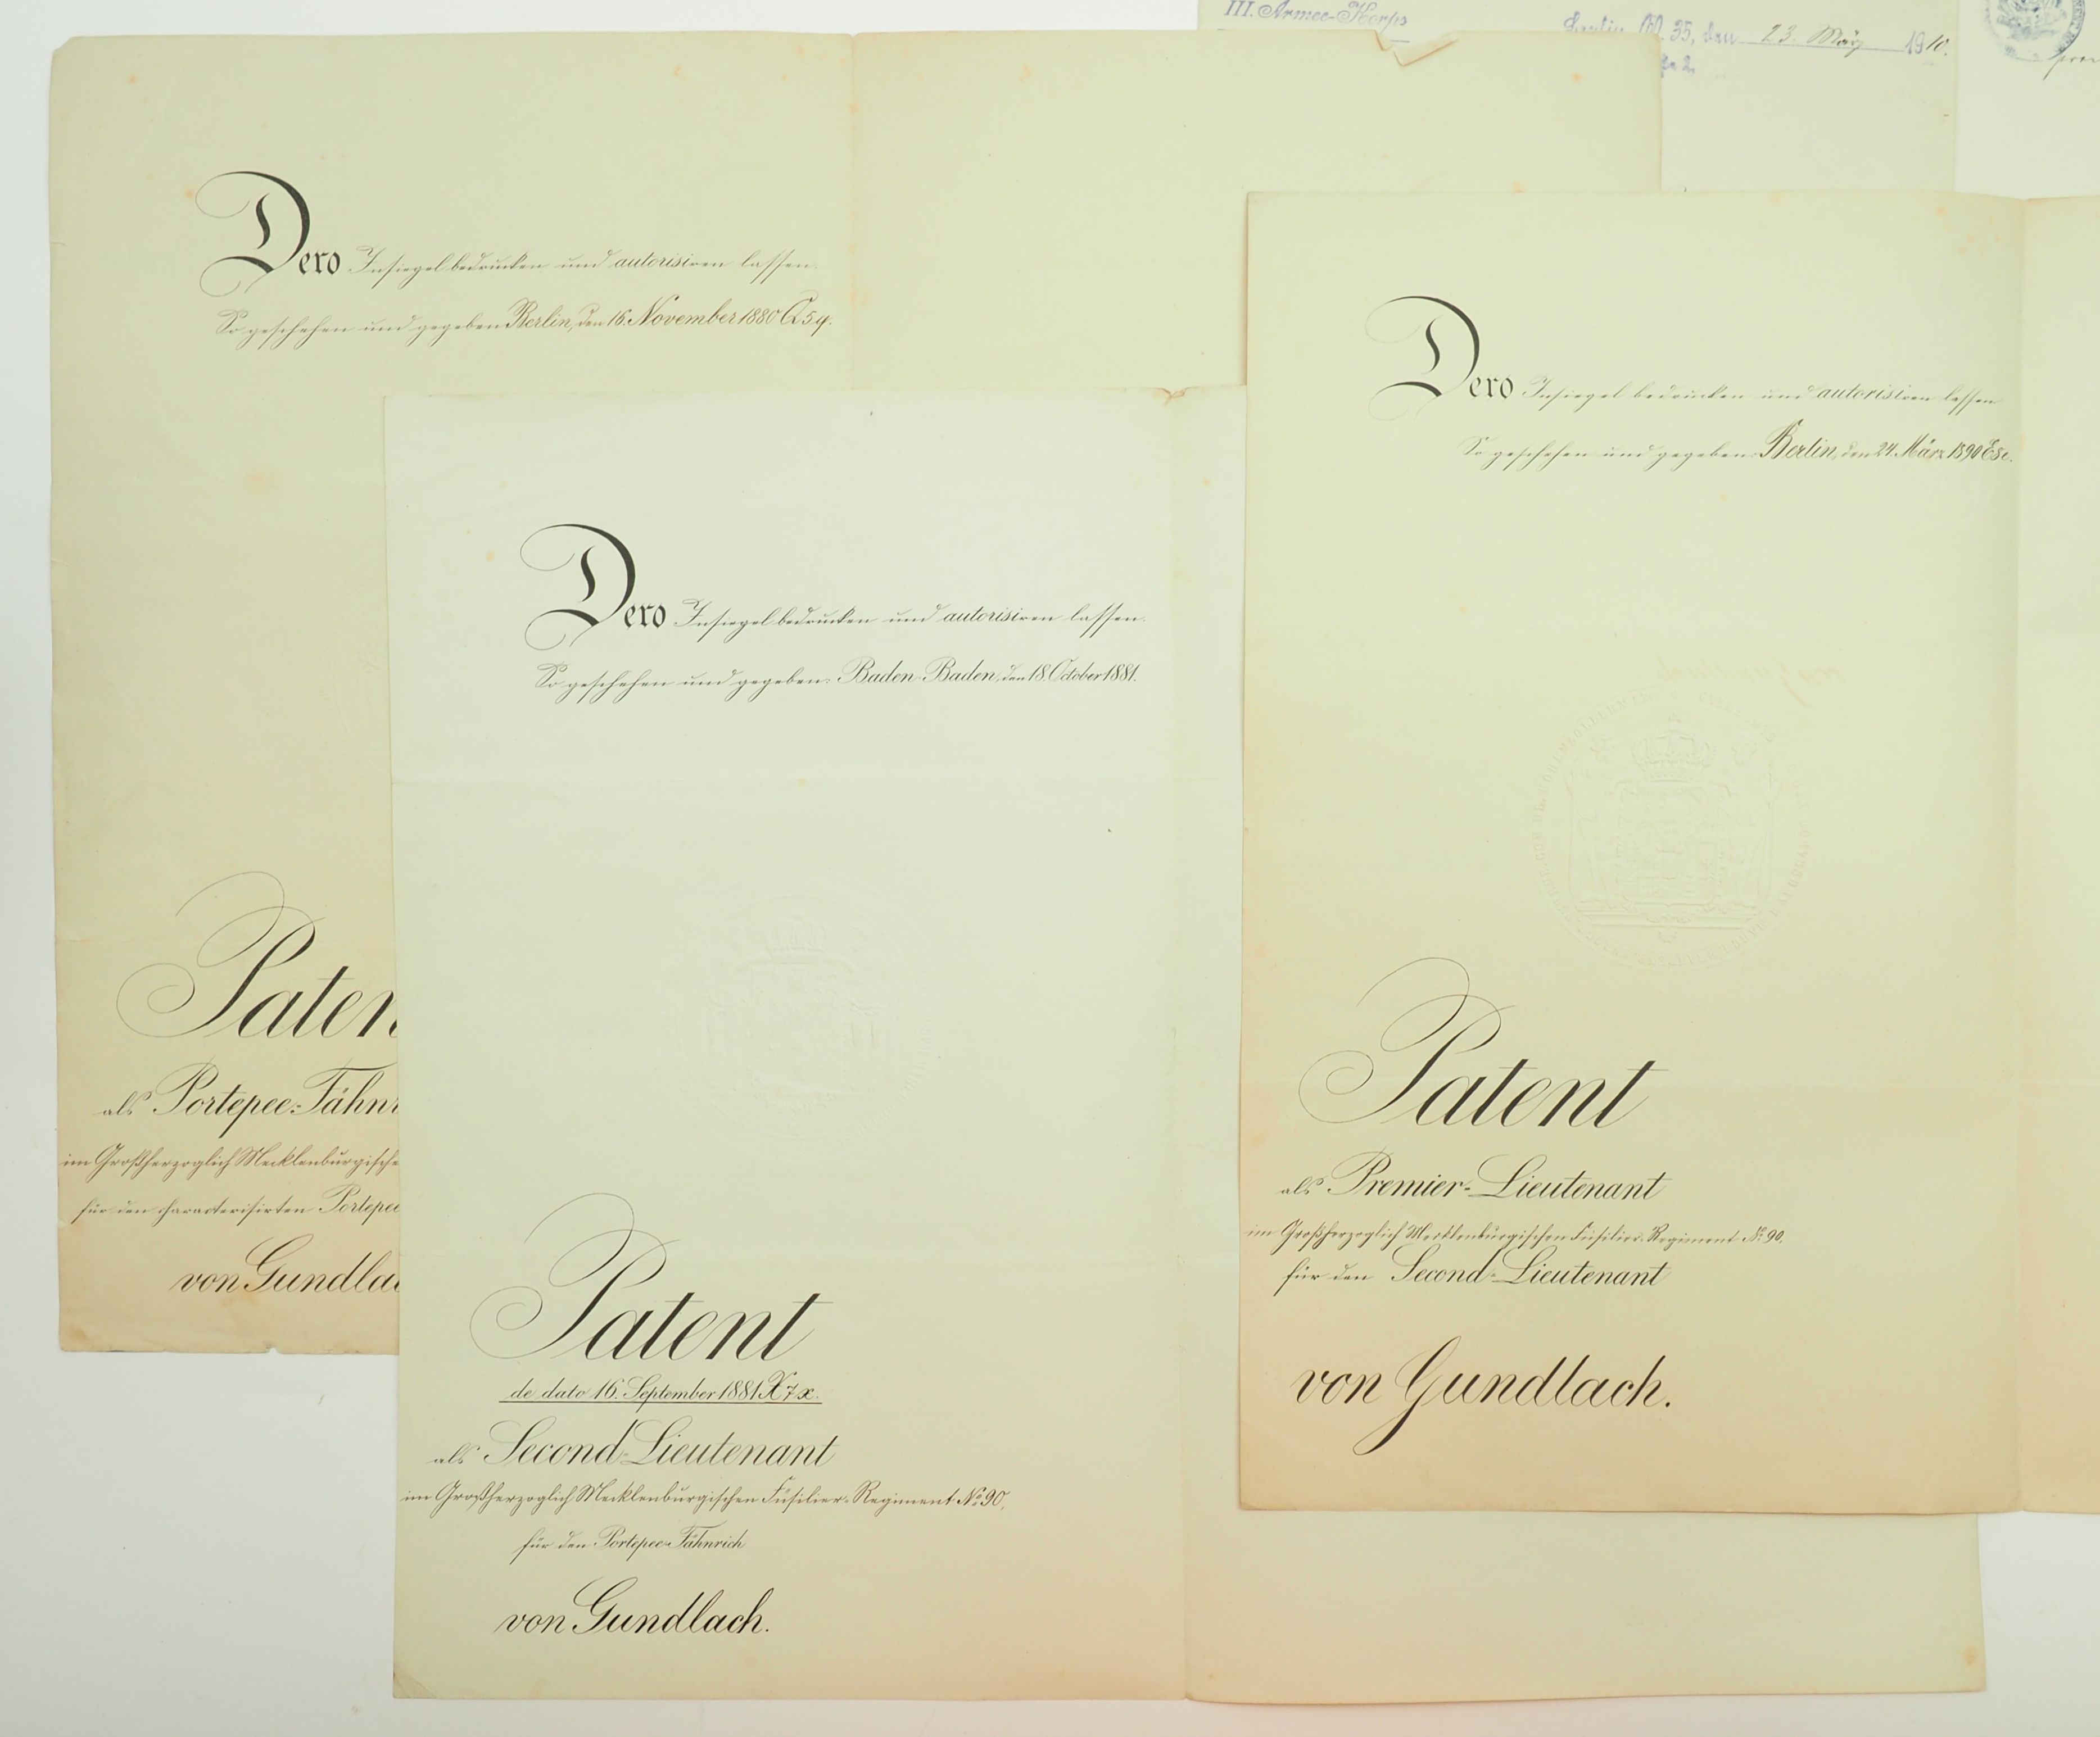 III. Armee-Korps
Berlin W. 35, den 23. März 1910.
Dero Insiegel bedrucken und autorisiren lassen.
So geschehen und gegeben Berlin, den 16. November 1880
Dero Insiegel bedrucken und autorisiren lassen.
So geschehen und gegeben Berlin, den 24. März 1890
Dero Insiegel bedrucken und autorisiren lassen.
So geschehen und gegeben Baden-Baden, den 18. October 1881.
Paten
als Portepee-Fähnr
im Großherzoglich Mecklenburgische
für den characterisirten Portepee
von Gundlac
Patent
de dato 16. September 1881 X 7 x.
als Second-Lieutenant
im Großherzoglich Mecklenburgischen Füsilier-Regiment No. 90,
für den Portepee-Fähnrich
von Gundlach.
Patent
als Premier-Lieutenant
im Großherzoglich Mecklenburgischen Füsilier-Regiment No. 90,
für den Second-Lieutenant
von Gundlach.